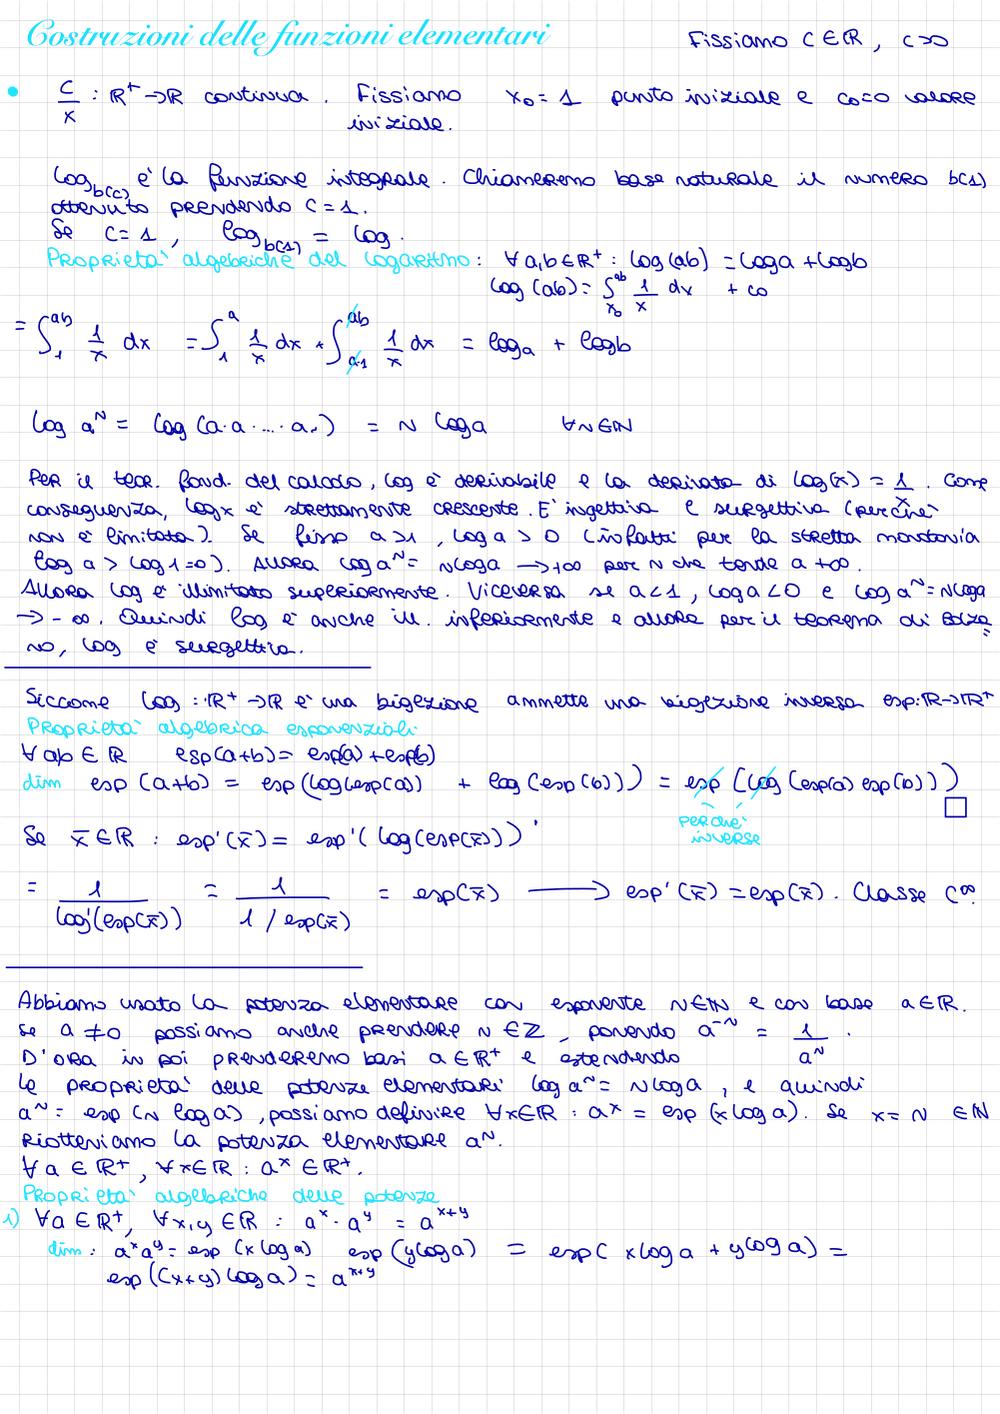 Costruzioni delle funzioni elementari Fissiamo c ∈ ℝ, c>0
• c/x : ℝ⁺ → ℝ continua. Fissiamo x₀ = 1 punto iniziale e c₀=0 valore
iniziale.
log_b(c) è la funzione integrale. Chiameremo base naturale il numero b(1)
ottenuto prendendo c = 1.
Se c = 1, log_b(1) = log.
Proprietà algebriche del logaritmo: ∀ a,b ∈ ℝ⁺ : log(ab) = log a + log b
log(ab) = ∫_x₀^ab 1/x dx + c₀
= ∫_1^ab 1/x dx = ∫_1^a 1/x dx + ∫_a·1^ab 1/x dx = log a + log b
log aᴺ = log(a·a·...·a·) = N log a ∀N∈ℕ
Per il teor. fond. del calcolo, log è derivabile e la derivata di log(x) = 1/x. Come
conseguenza, log x è strettamente crescente. E' ingettiva e surgettiva (perché
non è limitata). Se fisso a>1, log a > 0 (infatti per la stretta monotonia
log a > log 1=0). Allora log aᴺ = N log a → +∞ per N che tende a +∞.
Allora log è illimitato superiormente. Viceversa se a<1, log a<0 e log aᴺ = N log a
→ -∞. Quindi log è anche ill. inferiormente e allora per il teorema di Bolza
no, log è surgettiva.
Siccome log : ℝ⁺ → ℝ è una bigezione ammette una bigezione inversa esp: ℝ→ℝ⁺
Proprietà algebrica esponenziali
∀ ab ∈ ℝ esp(a+b) = esp(a) + esp(b)
dim esp(a+b) = esp(log(esp(a)) + log(esp(b))) = esp(log(esp(a) esp(b)))
perché
inverse □
Se x̄ ∈ ℝ : esp'(x̄) = esp'(log(esp(x̄)))'
= 1/log'(esp(x̄)) = 1/(1/esp(x̄)) = esp(x̄) → esp'(x̄) = esp(x̄). Classe C∞.
Abbiamo usato la potenza elementare con esponente N∈ℕ e con base a∈ℝ.
Se a ≠ 0 possiamo anche prendere N ∈ ℤ, ponendo a⁻ᴺ = 1/aᴺ.
D'ora in poi prenderemo basi a ∈ ℝ⁺ e estendendo
le proprietà delle potenze elementari log aᴺ = N log a, e quindi
aᴺ = esp(N log a), possiamo definire ∀x∈ℝ : aˣ = esp(x log a). Se x = N ∈ ℕ
riotteniamo la potenza elementare aᴺ.
∀a ∈ ℝ⁺, ∀x∈ℝ : aˣ ∈ ℝ⁺.
Proprietà algebriche delle potenze
1) ∀a ∈ ℝ⁺, ∀x,y ∈ ℝ : aˣ · aʸ = aˣ⁺ʸ
dim : aˣaʸ = esp(x log a) esp(y log a) = esp(x log a + y log a) =
esp((x+y) log a) = aˣ⁺ʸ